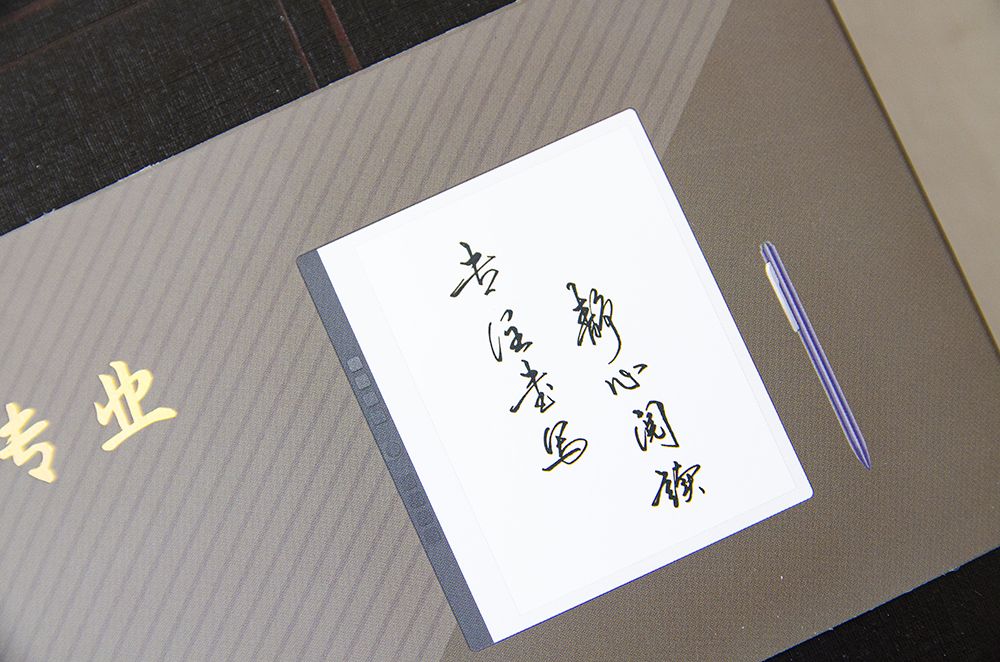 专业
静心阅读
专注书写